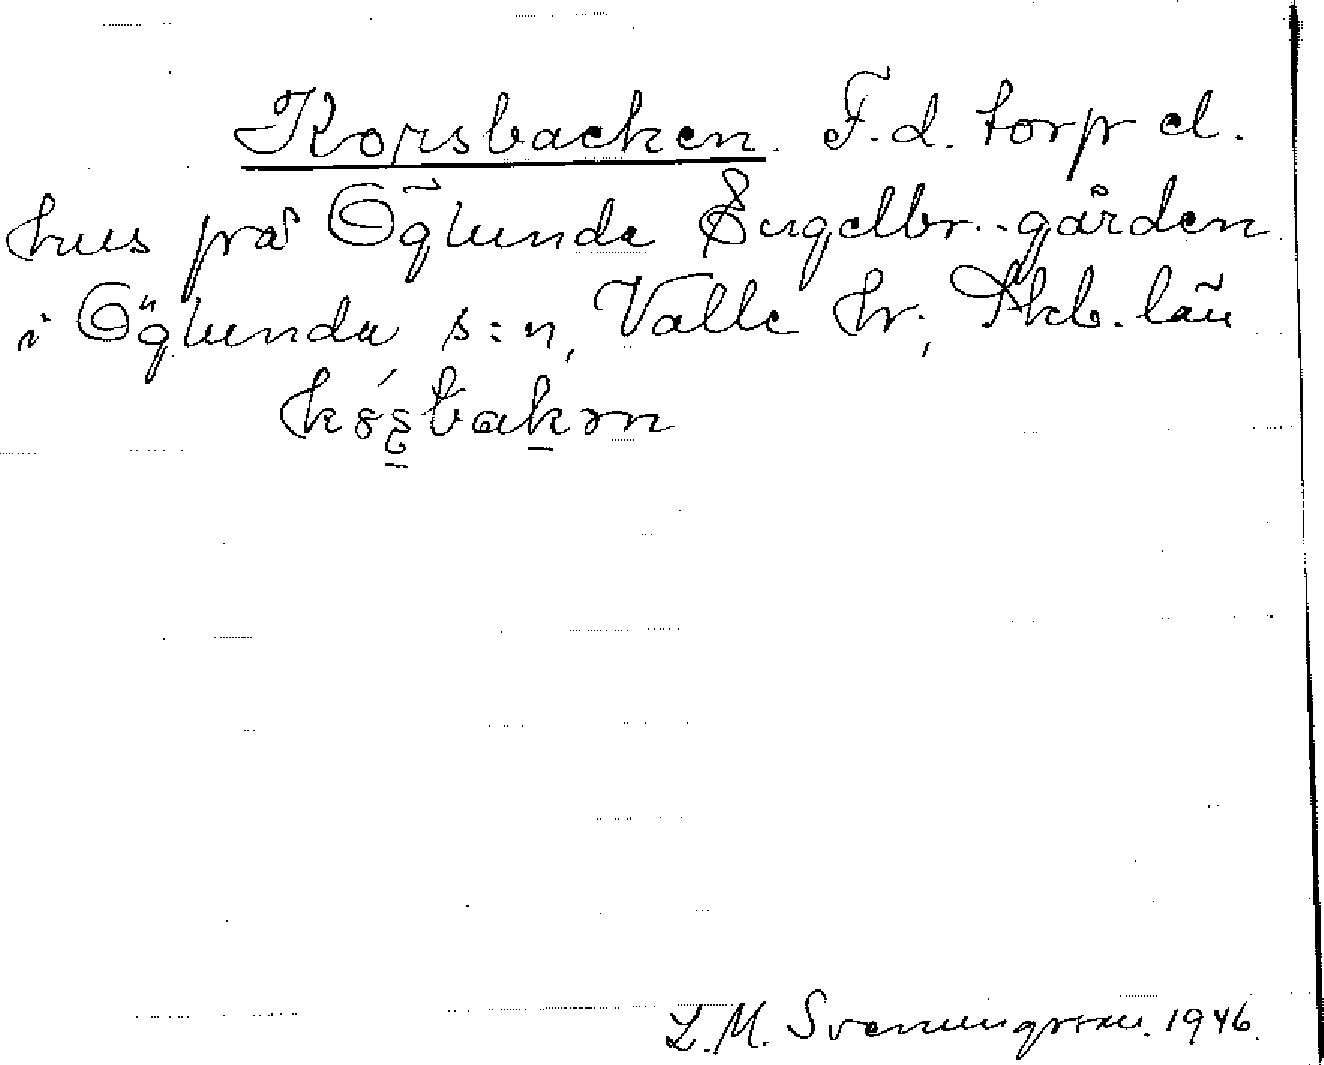 Korsbacken. F.d. torp el.
hus på Öglunda Engelbr.-gården
i Öglunda s:n, Valle hr, Skb. län
L.M. Svenungsson. 1946.